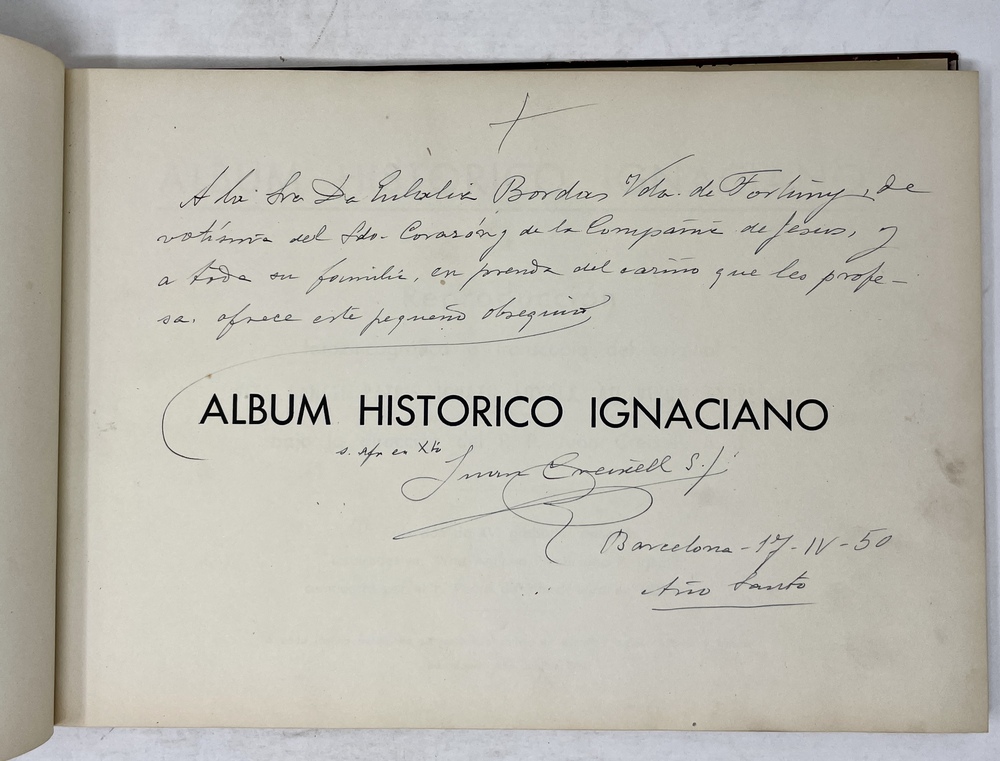 A la Sra Da Eulalia Bordas Vda. de Fortuny, de
votísima del Sdo. Corazón y de la Compañía de Jesus, y
a toda su familia, en prenda del cariño que les profe-
sa. ofrece este pequeño obsequio
ALBUM HISTORICO IGNACIANO
s. afr en Xto
Juan Creixell S.J.
Barcelona - 17 - IV - 50
Año Santo